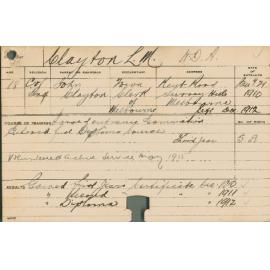 Clayton L.M. H.D.A.
AGE RELIGION PARENT OR GUARDIAN ADDRESS DATE OF ENTRANCE
18 C of John Town Kent Road Mar 1st
Eng Clayton Clerk Surrey Hills 1910
of Melbourne
Melbourne Left Dec. 1912
COURSE OF TRAINING
Entered Diploma Course
Third year
Volunteered Active Service May 1915
RESULTS Gained First Year Certificate Dec 1910
" Second " 1911
" Diploma " 1912